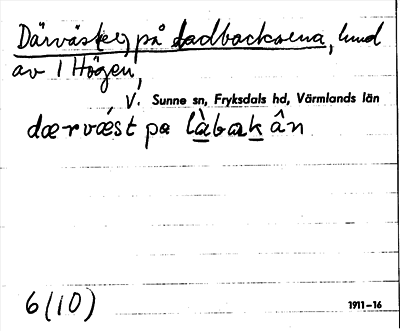 Därväster på Ladbackarna, lund
av 1 Högen,
V. Sunne sn, Fryksdals hd, Värmlands län
dærvæ̀st pɑ làbɑkân
6(10)
1911–16